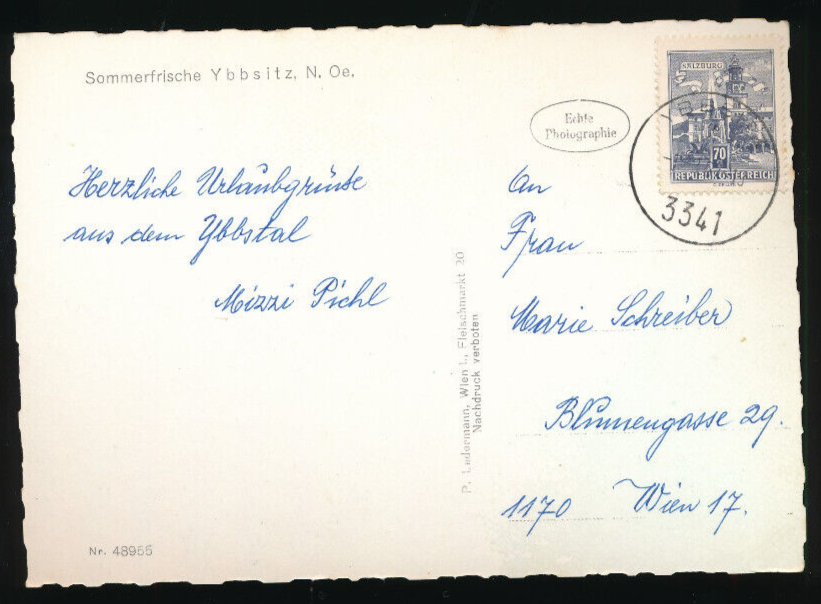 Sommerfrische Ybbsitz, N. Oe.
Herzliche Urlaubgrüsse
aus dem Ybbstal
Mizzi Pichl
Nr. 48955
P. Ledermann, Wien I., Fleischmarkt 20
Nachdruck verboten
Echte
Photographie
SALZBURG
70
REPUBLIK ÖSTERREICH
3341
An
Frau
Marie Schreiber
Blumengasse 29.
1170 Wien 17.